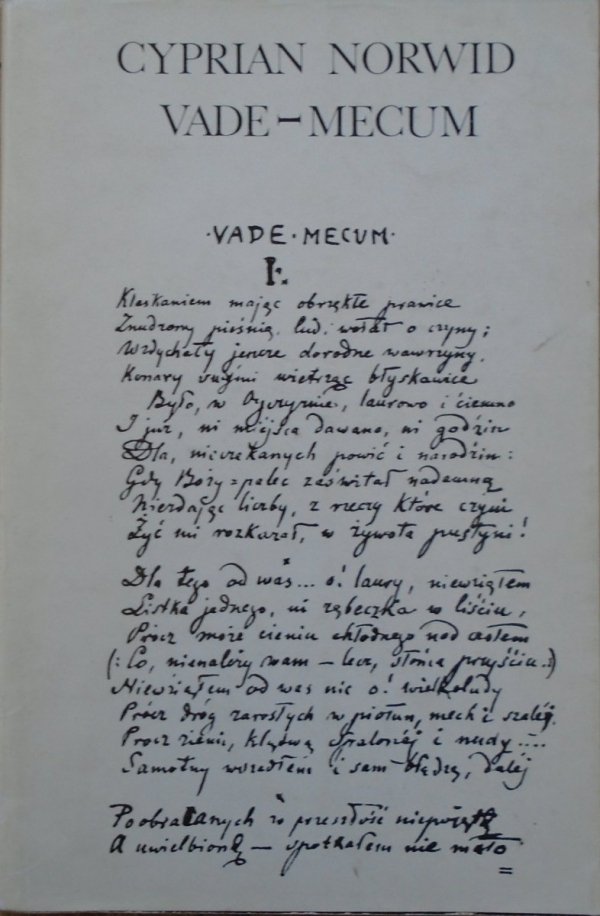 CYPRIAN NORWID
VADE-MECUM
·VADE·MECUM·
I.
Klaskaniem mając obrzękłe prawice
Znudzony pieśnią, lud, wołał o czyny;
Wzdychały jeszcze dorodne wawrzyny,
Konary swémi wietrząc błyskawice
Było, w Ojczyznie, laurowo i ćiemno
I już, ni miejsca dawano, ni godzin
Dla, nieczekanych powić i narodzin:
Gdy Boży=palec zaświtał nademną
Nierdając liczby, z rzeczy które czyni
Żyć mi rozkazał, w żywota pustyni!
Dla tego od was... o! laury, niewziąłem
Listka jednego, ni ząbeczka w liściu,
Prócz może cieniu chłodnego nad czołem
(: Co, nienależy wam — lecz, słońca przyściu..:)
Niewziąłem od was nic o! wielkoludy
Prócz dróg zarosłych w piołun, mech i szaléj,
Prócz ziemi, klątwą spalonéj i nudy....
Samotny wszedłem i sam błądzę, daléj
Poobracanych w przeszłość niepojętą
A uwielbioną — spotkałem nie mało
=